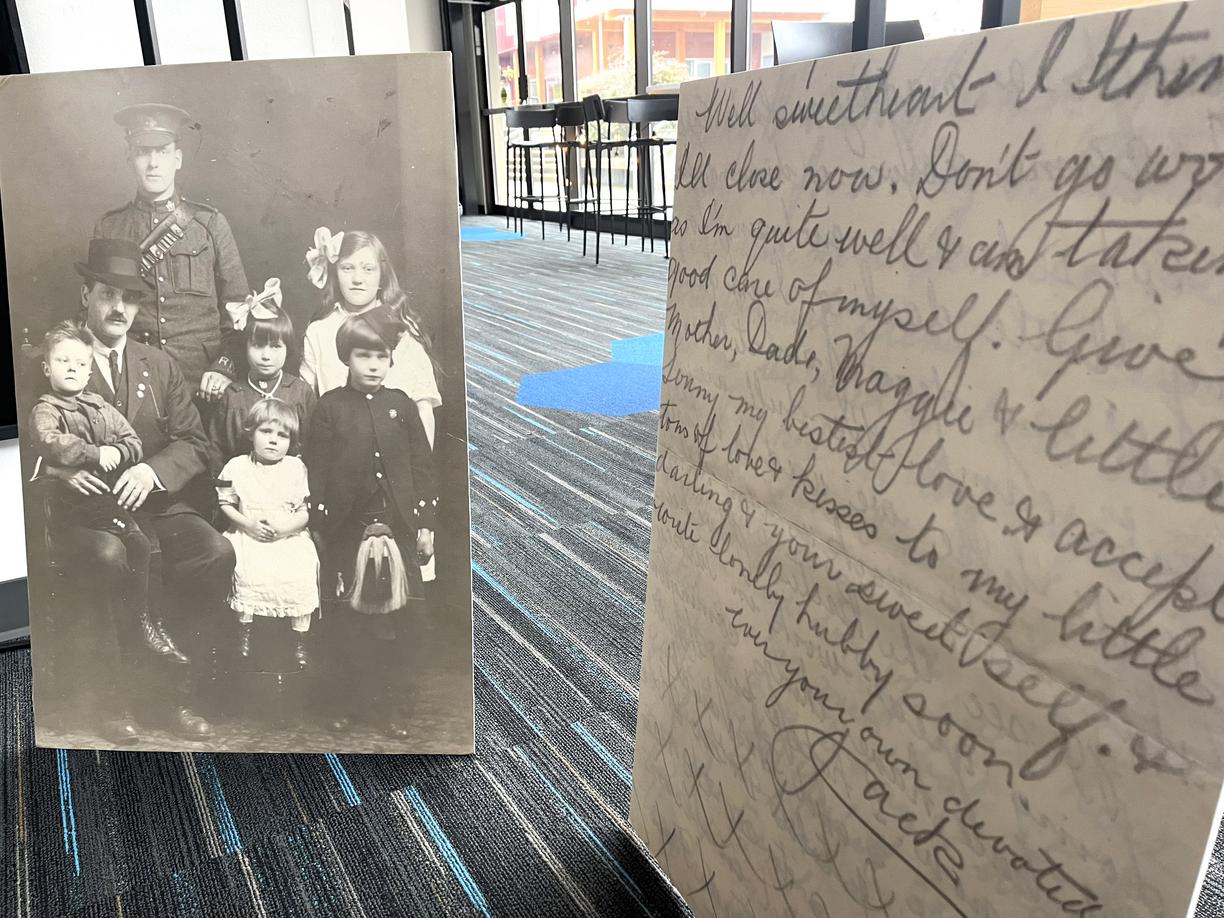 Well sweetheart I
I'll close now. Don't go
as I'm quite well & am
good care of myself. Give
Mother, Dads, Maggie & little
Sonny my bestest love & accept
tons of love & kisses to my little
darling & your sweet self. &
write lonely hubby soon.
ever your own devoted
Jack
x x x
x x x x
x x x